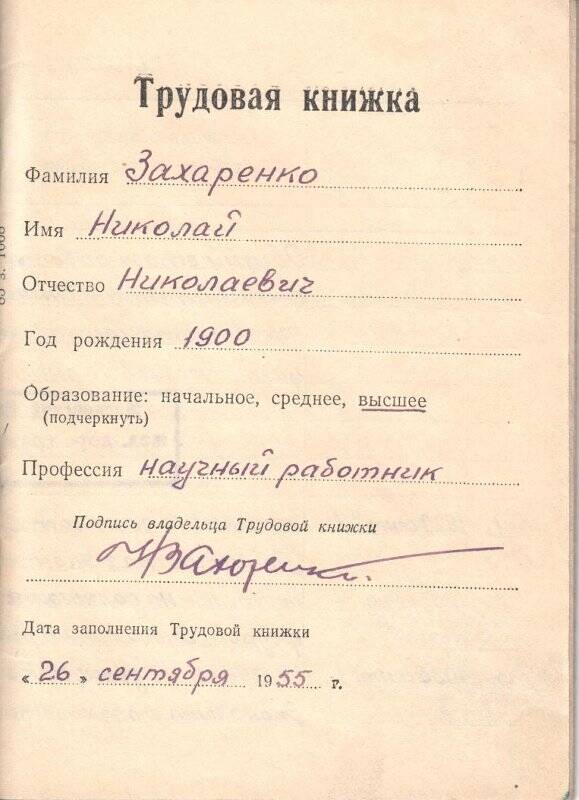 Трудовая книжка
Фамилия Захаренко
Имя Николай
Отчество Николаевич
Год рождения 1900
Образование: начальное, среднее, высшее
(подчеркнуть)
Профессия научный работник
Подпись владельца Трудовой книжки
Дата заполнения Трудовой книжки
«26» сентября 1955 г.